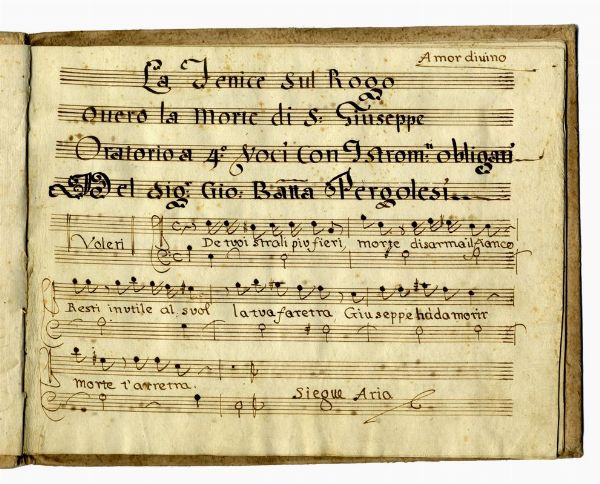 Amor divino
La Fenice sul Rogo
overo la Morte di S: Giuseppe
Oratorio a 4° Voci Con Istrom:ti obligati
Del Sig.r Gio: Batta Pergolesi
Voleri
De tuoi strali piu fieri, morte disarma il fianco
Resti inutile al suol la tua faretra Giuseppe ha da morir
morte t'arretra.
Siegue Aria